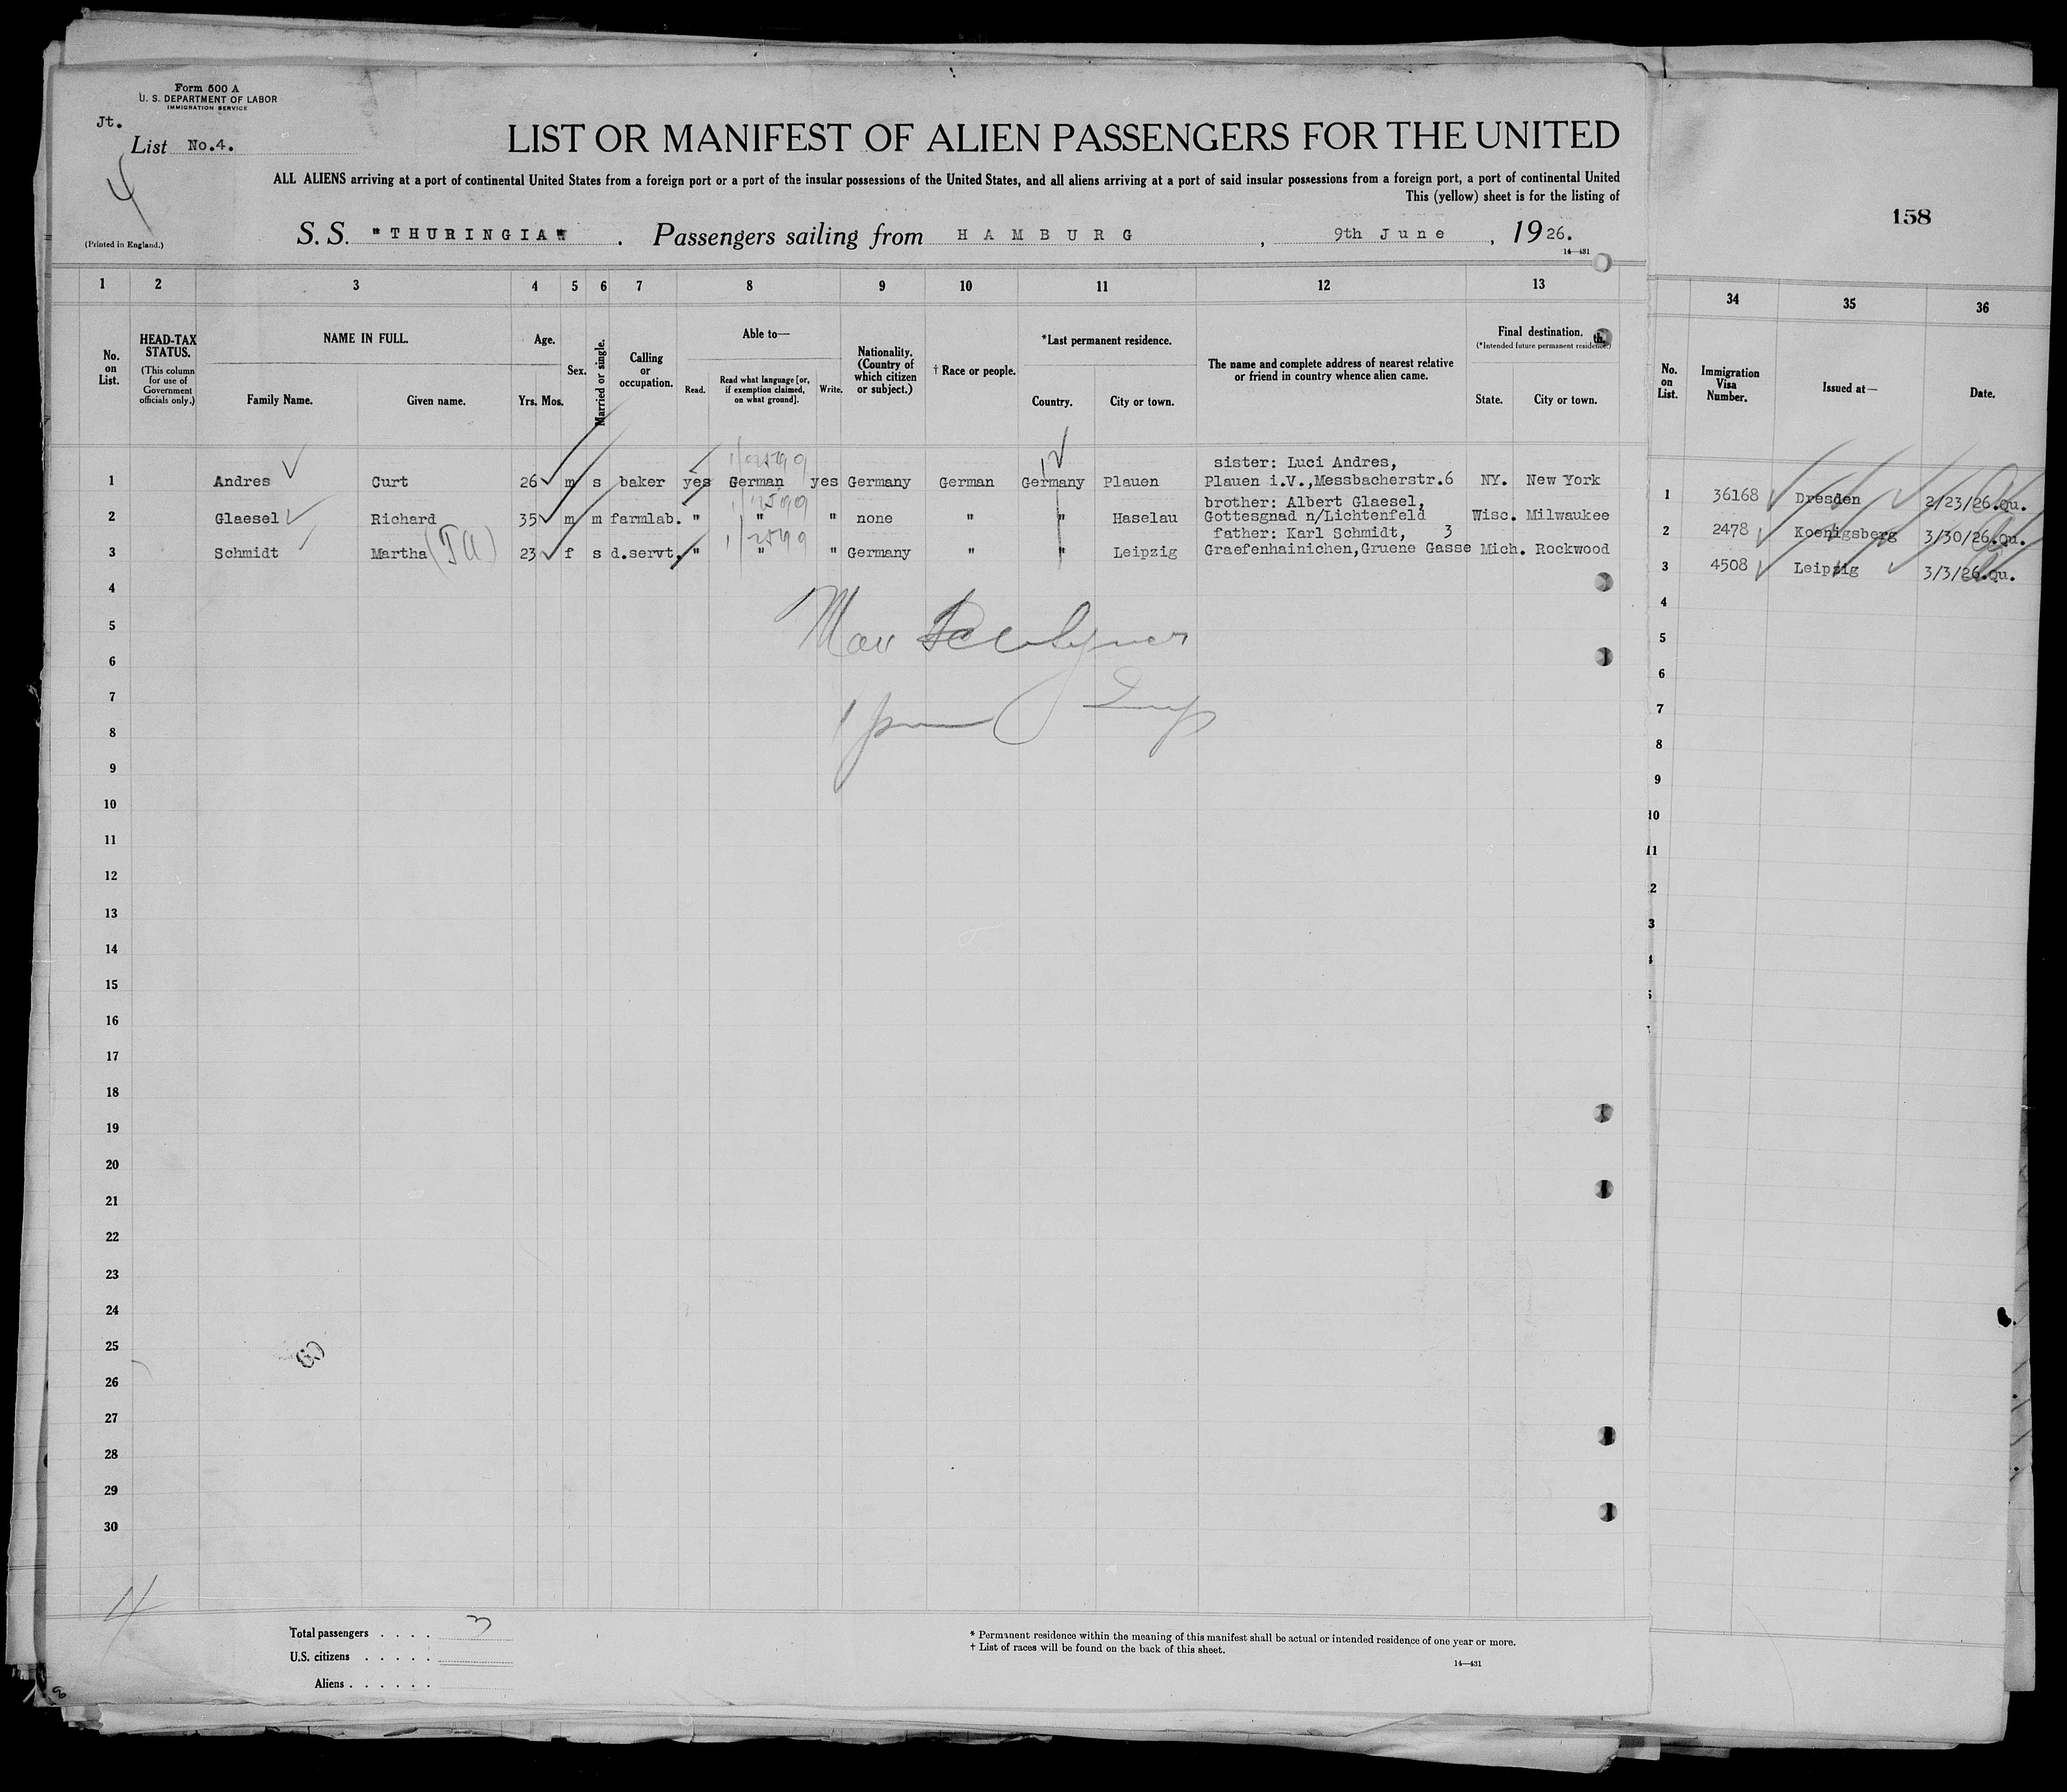 Form 500 A
U. S. DEPARTMENT OF LABOR
IMMIGRATION SERVICE
Jt.
List No.4.
4
(Printed in England.)
LIST OR MANIFEST OF ALIEN PASSENGERS FOR THE UNITED
ALL ALIENS arriving at a port of continental United States from a foreign port or a port of the insular possessions of the United States, and all aliens arriving at a port of said insular possessions from a foreign port, a port of continental United
This (yellow) sheet is for the listing of
S. S. "THURINGIA" . Passengers sailing from HAMBURG , 9th June , 19 26.
14—431
158
1 2 3 4 5 6 7 8 9 10 11 12 13
34 35 36
No. on List.
HEAD-TAX STATUS.
(This column for use of Government officials only.)
NAME IN FULL.
Family Name. Given name.
Age.
Yrs. Mos.
Sex.
Married or single.
Calling or occupation.
Able to—
Read. Read what language [or, if exemption claimed, on what ground]. Write.
Nationality. (Country of which citizen or subject.)
† Race or people.
*Last permanent residence.
Country. City or town.
The name and complete address of nearest relative or friend in country whence alien came.
Final destination.
(*Intended future permanent residence.)
State. City or town.
No. on List.
Immigration Visa Number.
Issued at—
Date.
1 Andres Curt 26 m s baker yes German yes Germany German Germany Plauen sister: Luci Andres, Plauen i.V.,Messbacherstr.6 NY. New York
2 Glaesel Richard 35 m m farmlab. " " " none " " Haselau brother: Albert Glaesel, Gottesgnad n/Lichtenfeld Wisc. Milwaukee
3 Schmidt Martha 23 f s d.servt. " " " Germany " " Leipzig father: Karl Schmidt, 3 Graefenhainichen,Gruene Gasse Mich. Rockwood
1 36168 Dresden 2/23/26.Qu.
2 2478 Koenigsberg 3/30/26.Qu.
3 4508 Leipzig 3/3/26.Qu.
4
5
6
7
8
9
10
11
12
13
14
15
16
17
18
19
20
21
22
23
24
25
26
27
28
29
30
4
5
6
7
8
9
10
11
2
3
4
Total passengers . . . . 3
U.S. citizens . . . . .
Aliens . . . . . .
* Permanent residence within the meaning of this manifest shall be actual or intended residence of one year or more.
† List of races will be found on the back of this sheet.
14—431